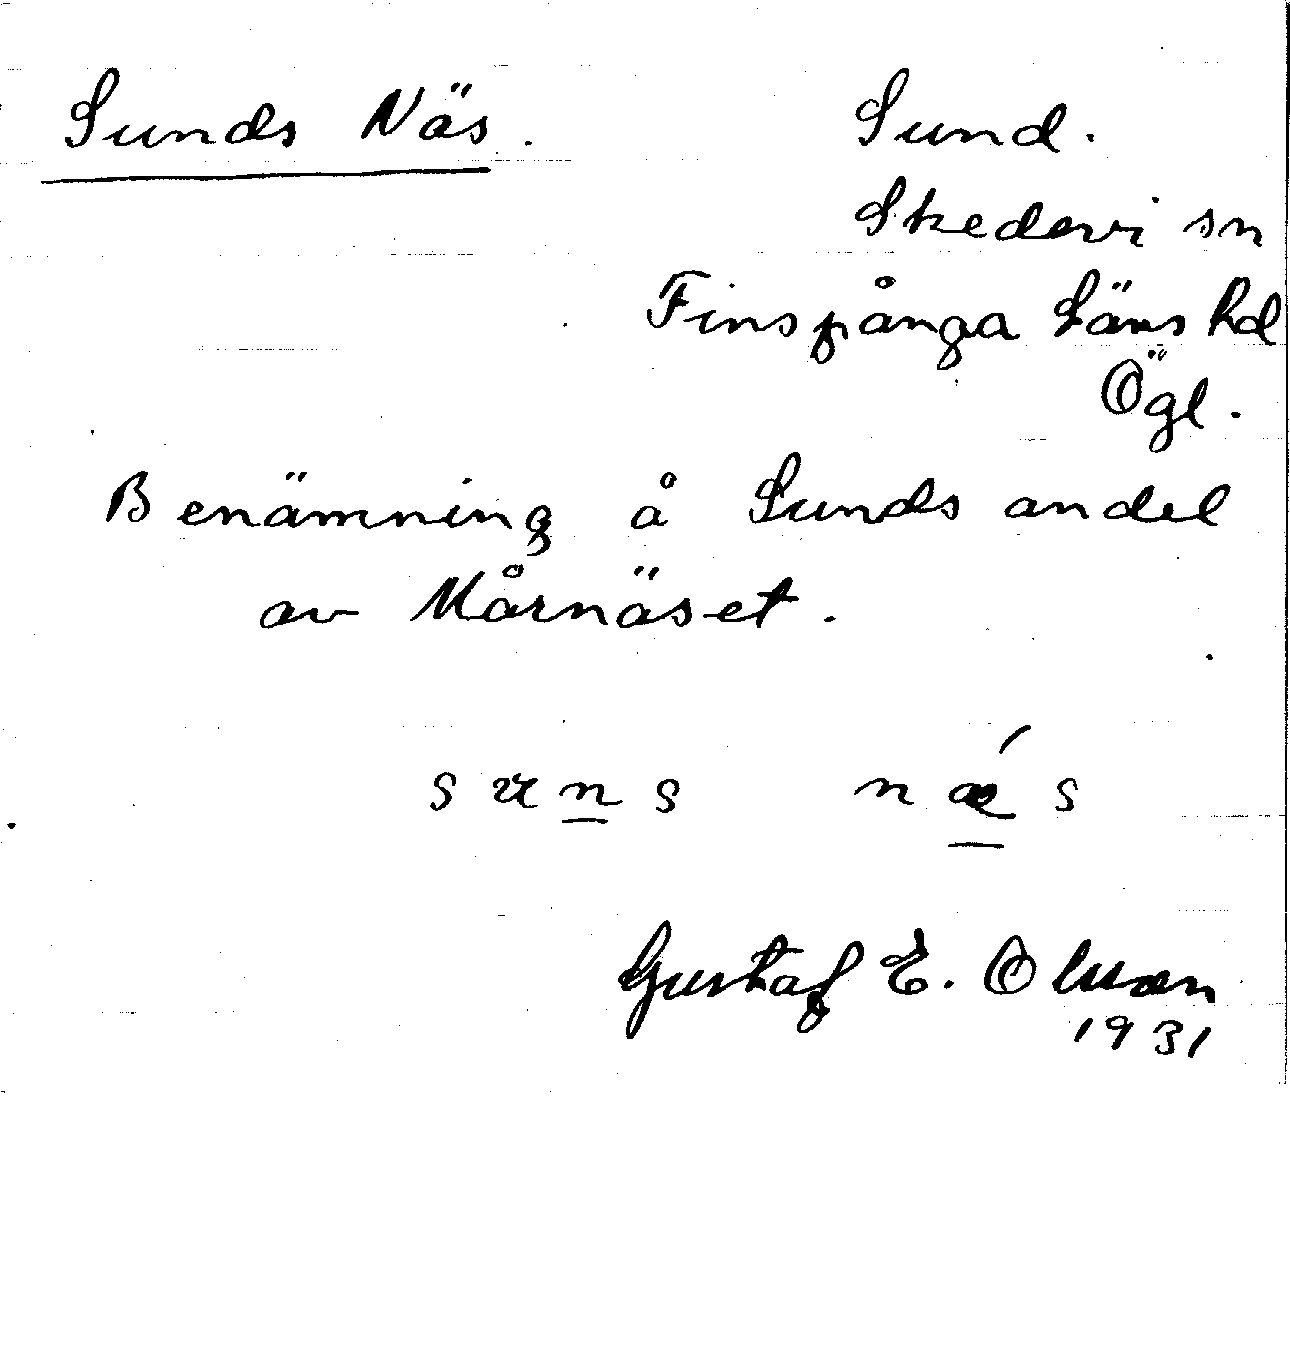 Sunds Näs.
Sund.
Skedevi sn
Finspånga Läns hd
Ögl.
Benämning å Sunds andel
av Mårnäset.
suns nǽs
Gustaf E. Olsson
1931